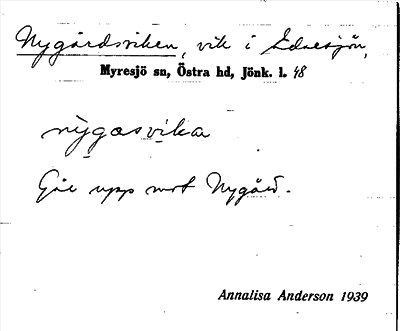 Nygårdsviken, vik i Ednesjön,
Myresjö sn, Östra hd, Jönk. l. 48
nỳgasvika
Går upp mot Nygård.
Annalisa Anderson 1939